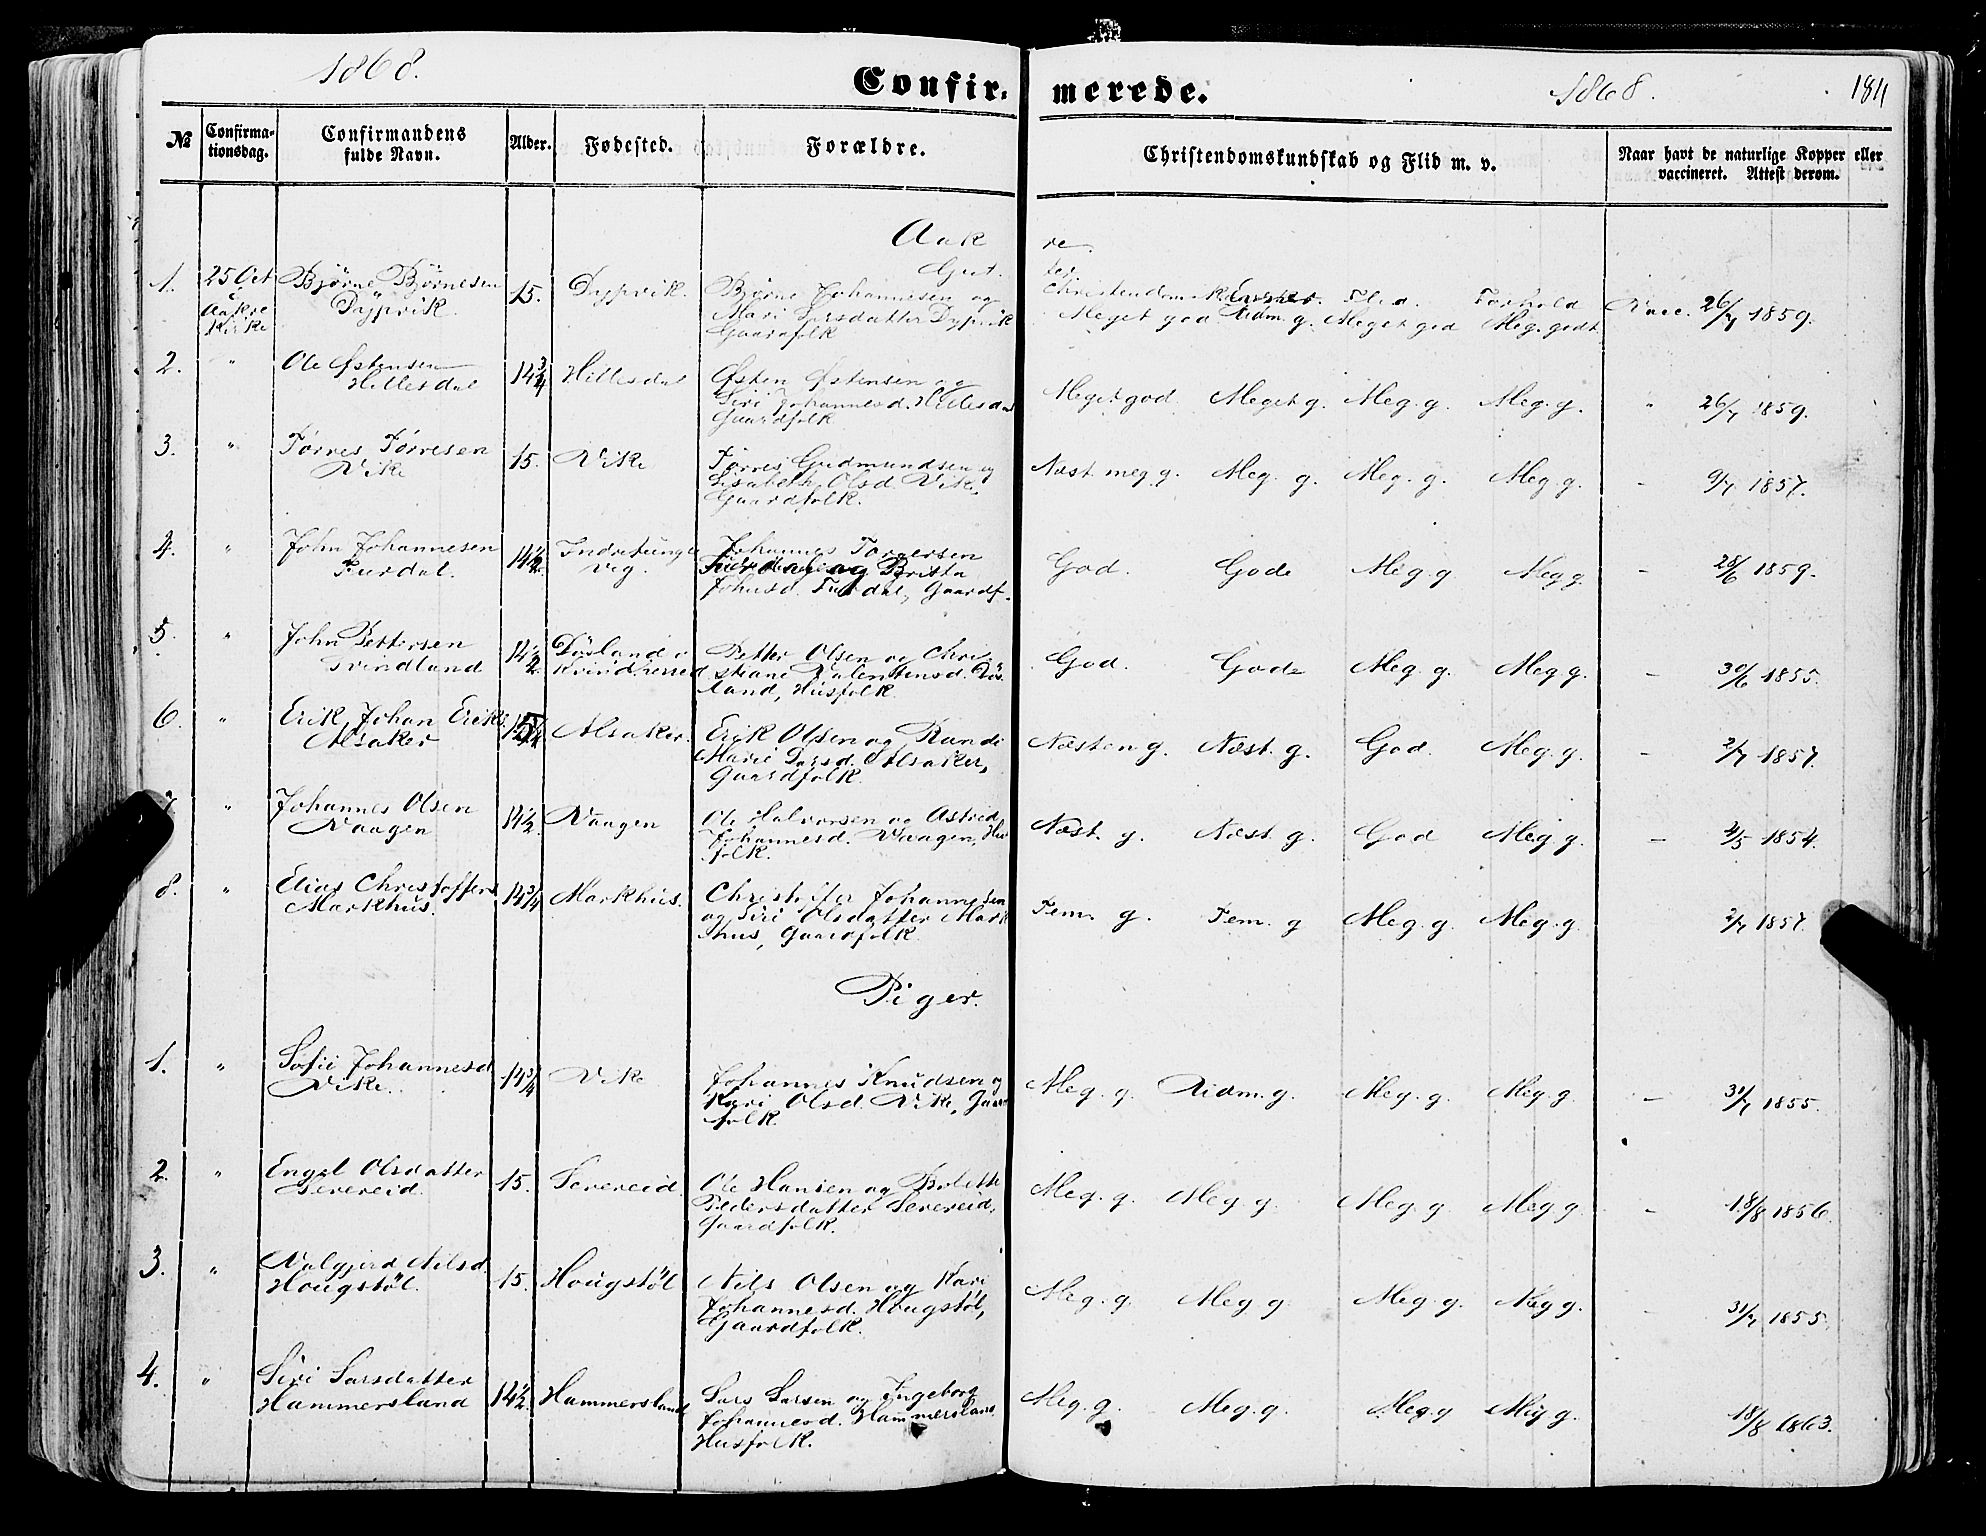 1868.
Confirmerede.
1868.
184
№
Confirmationsdag.
Confirmandens fulde Navn.
Alder.
Fødested.
Forældre.
Christendomskundskab og Flid m. v.
Naar havt de naturlige Kopper eller vaccineret. Attest derom.
Aakre
Gutter
1. 25 Oct i Aakre Kirke Bjørne Bjørnesen Dypvik 15. Dypvik. Bjørne Johannesen og Mari Larsdatter Dypvik Gaardfolk Christendomsk. Meget god Udm. g. Flid. Meget god Forhold Meg. godt Vacc. 26/7 1859.
2. " Ole Østensen Hillesdal 14 3/4 Hillesdal Østen Østensen og Siri Johannesd. Hillesdal Gaardfolk Meget god. Meget g. Meg. g. Meg. g. " 26/7 1859.
3. " Tørres Tørresen Vike 15. Vike Tørres Gudmundsen og Lisabeth Olsd. Vike, Gaardfolk. Næst. meg g. Meg. g. Meg. g. Meg. g. - 9/7 1857.
4. " John Johannesen Furdal. 14 1/2 Johannes Torgersen Furdal og Britta Johnsd. Furdal, Gaardf. God. Gode Meg. g Meg g. - 28/6 1859.
5. " John Pettersen Tvindland 14 1/2 Døsland i Kvindherred Petter Olsen og Christiane Valentinsd. Døsland, Husfolk God. Gode Meg. g. Meg g. - 30/6 1855.
6. " Erik Johan Eriks. Alsaker 15 1/4 Alsaker. Erik Olsen og Randi Marie Larsd. Alsaker, Gaardfolk Næsten g. Næst. g. God. Meg. g. - 2/7 1857.
7 " Johannes Olsen Vaagen 14 1/2 Vaagen Ole Halvorsen og Astrid Johannesd. Vaagen, Husfolk. Næst. g. Næst. g. God Meg. g. - 4/5 1854.
8. " Elias Christoffers. Markhus. 14 3/4 Markhus. Christoffer Johannesen og Siri Olsdatter Markhus, Gaardfolk. Tem. g. Tem. g Meg. g. Meg. g. 2/7 1857.
Piger.
1. " Sofie Johannesd Vike. 14 3/4 Vike Johannes Knudsen og Kari Olsd. Vike, Gaardfolk. Meg. g. Udm. g. Meg. g. Meg g. - 31/7 1855.
2. " Engel Olsdatter Severeid. 15. Severeid. Ole Hansen og Bolette Pedersdatter Severeid, Gaardfolk. Meg. g. Meg g. Meg. g Meg g. - 18/8 1856.
3. " Valgjerd Nilsd. Hougstøl. 15. Hougstøl Nils Olsen og Kari Johannesd. Hougstøl, Gaardfolk. Meg. g. Meg. g. Meg. g. Meg g. - 31/7 1855.
4. " Siri Larsdatter Hammersland 14 1/2 Hammersland Lars Larsen og Ingeborg Johannesd. Hammersland Husfolk. Meg. g. Meg. g. Meg. g Meg g. 18/8 1863.